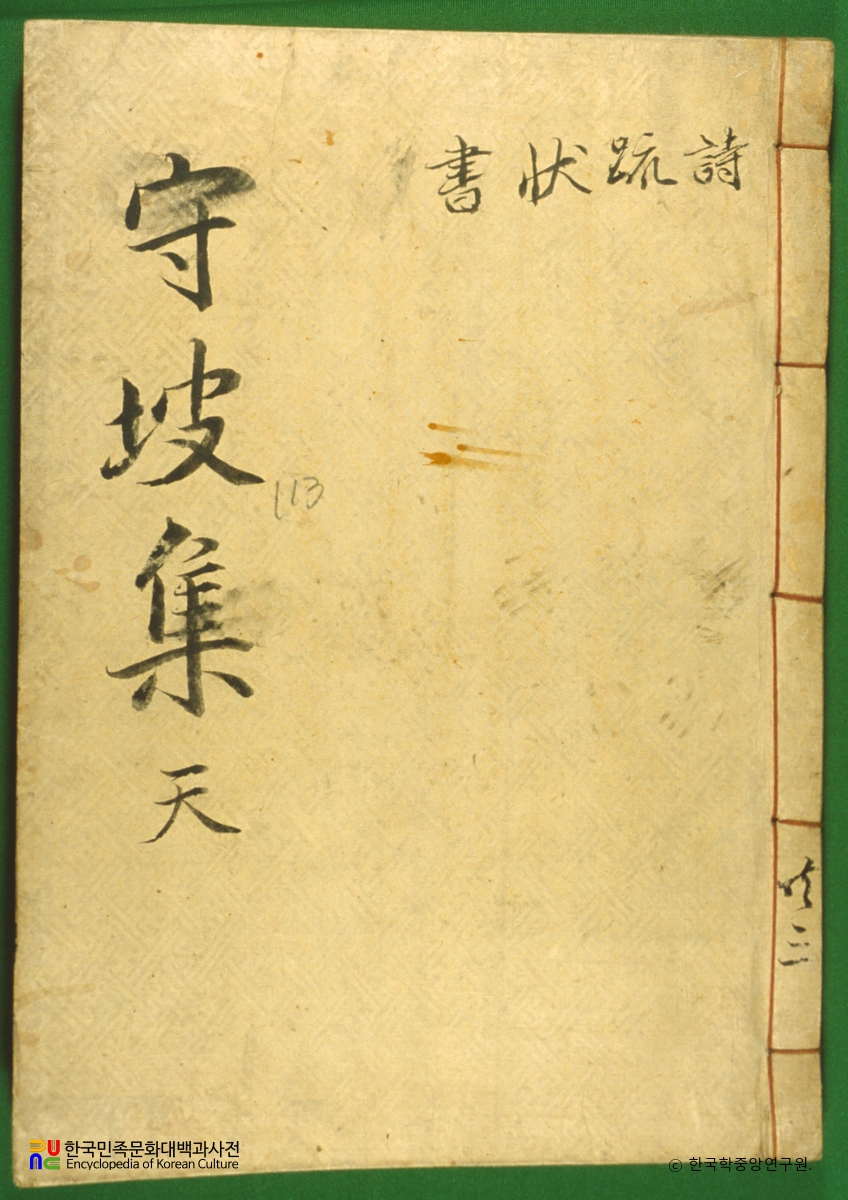 詩 疏 狀 書
守坡集 天
113
共三
한국민족문화대백과사전
Encyclopedia of Korean Culture
© 한국학중앙연구원.